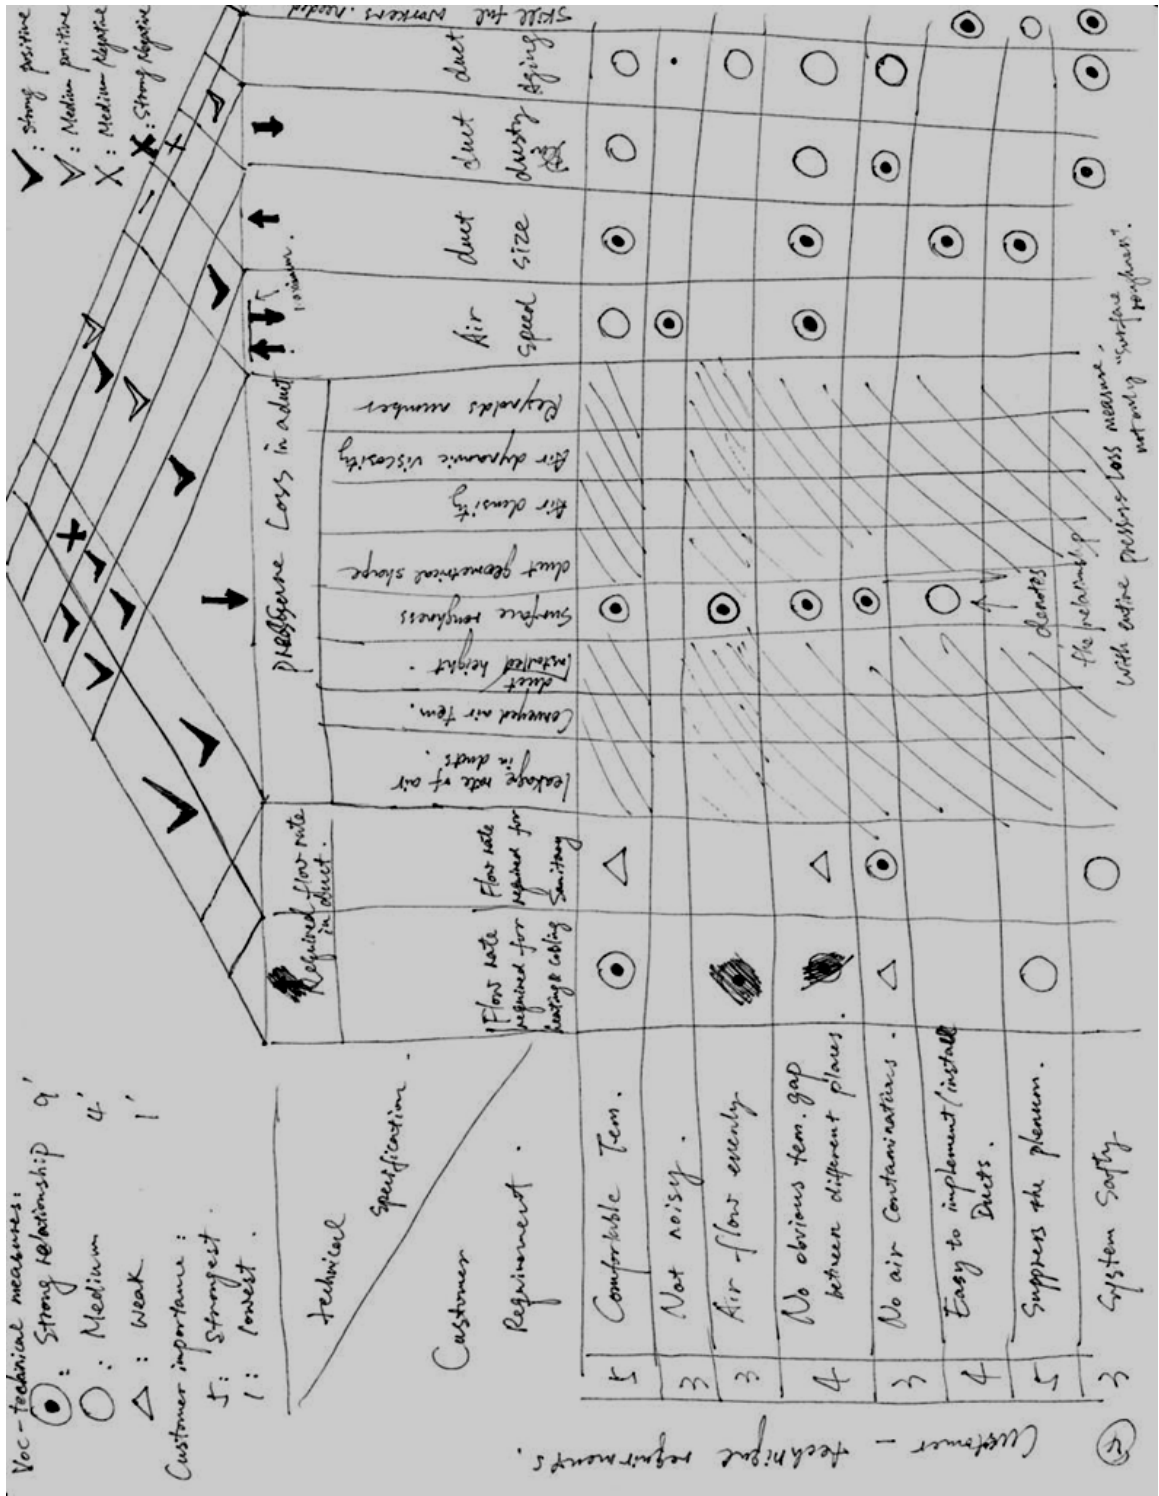 Voc-technical measures:
Strong relationship 9'
: Medium 4'
: weak 1'
Customer importance:
5: Strongest.
1: lowest.
✓: Strong positive
: Medium positive
X: Medium Negative
X: Strong Negative
technical
Specification.
Customer
Requirement.
Required flow rate
in duct.
Flow rate
required for
heating & cooling
Flow rate
required for
Sanitary
pressure Loss in a duct.
leakage rate of air
in ducts.
Conveyed air tem.
duct
Installed height.
Surface roughness
duct geometrical shape
Air density
Air dynamic viscosity
Reynolds number
Air
speed
duct
size
duct
dusty
duct
Aging
Skill ful workers needed
5 Comfortable Tem.
3 Not noisy.
3 Air-flow evenly
4 No obvious tem. gap
between different places.
3 No air Contaminations.
4 Easy to implement/install
Ducts.
5 Suppress the plenum.
3 System Safty
denotes
the relationship
with entire pressure loss measure.
not only "surface
roughness".
Customer - technique requirments.